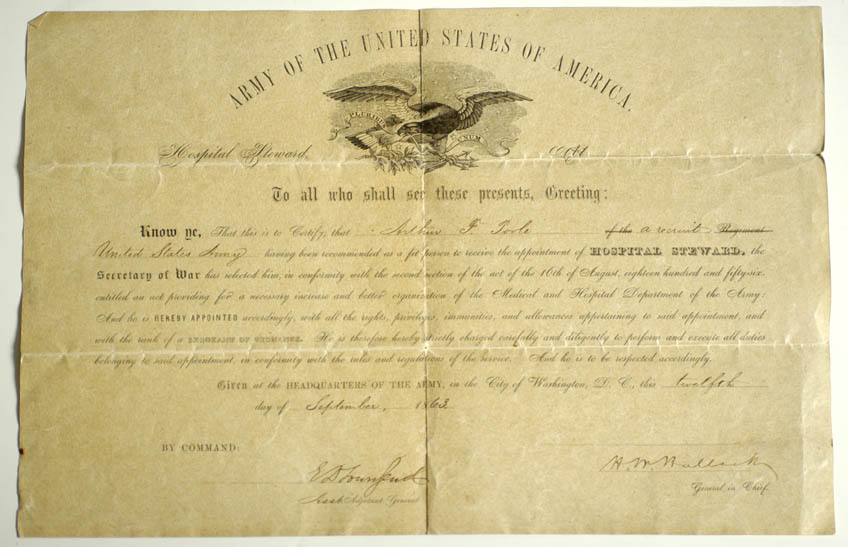 ARMY OF THE UNITED STATES OF AMERICA.
E PLURIBUS UNUM
Hospital Steward,
To all who shall see these presents, Greeting:
Know ye, That this is to Certify, that Arthur F. Poole of the a recruit Regiment
United States Army having been recommended as a fit person to receive the appointment of HOSPITAL STEWARD, the
Secretary of War has selected him, in conformity with the second section of the act of the 16th of August, eighteen hundred and fifty-six,
entitled an act providing for a necessary increase and better organization of the Medical and Hospital Department of the Army:
And he is HEREBY APPOINTED accordingly, with all the rights, privileges, immunities, and allowances appertaining to said appointment, and
with the rank of a SERGEANT OF ORDNANCE. He is therefore hereby strictly charged carefully and diligently to perform and execute all duties
belonging to said appointment, in conformity with the rules and regulations of the service. And he is to be respected accordingly.
Given at the HEADQUARTERS OF THE ARMY, in the City of Washington, D. C., this twelfth
day of September, 1863
BY COMMAND:
E D Townsend
Asst. Adjutant General
H. W. Halleck
General in Chief.